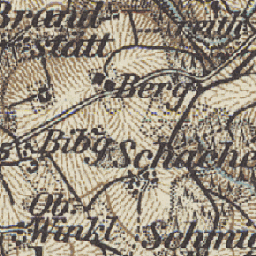 Brand-
statt
Berg
Bibg
Schache
Ob.
Winkl
Schmu